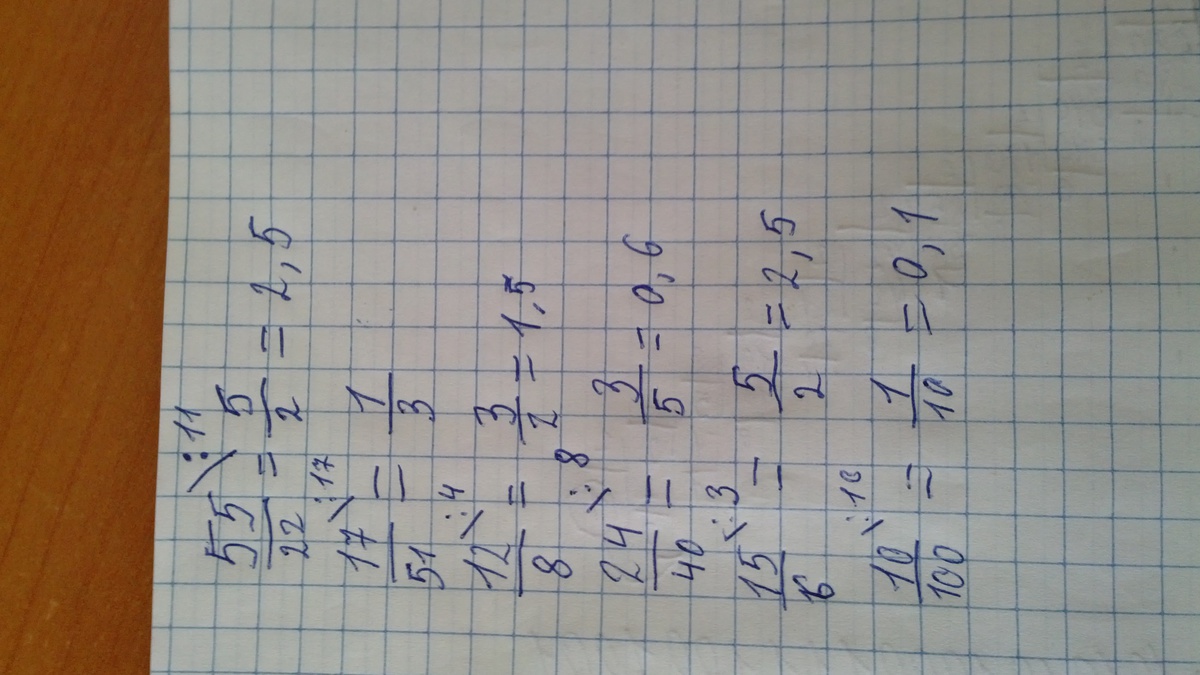 55/22 \:11 = 5/2 = 2,5
17/51 \:17 = 1/3
12/8 \:4 = 3/2 = 1,5
24/40 \:8 = 3/5 = 0,6
15/6 \:3 = 5/2 = 2,5
10/100 \:10 = 1/10 = 0,1